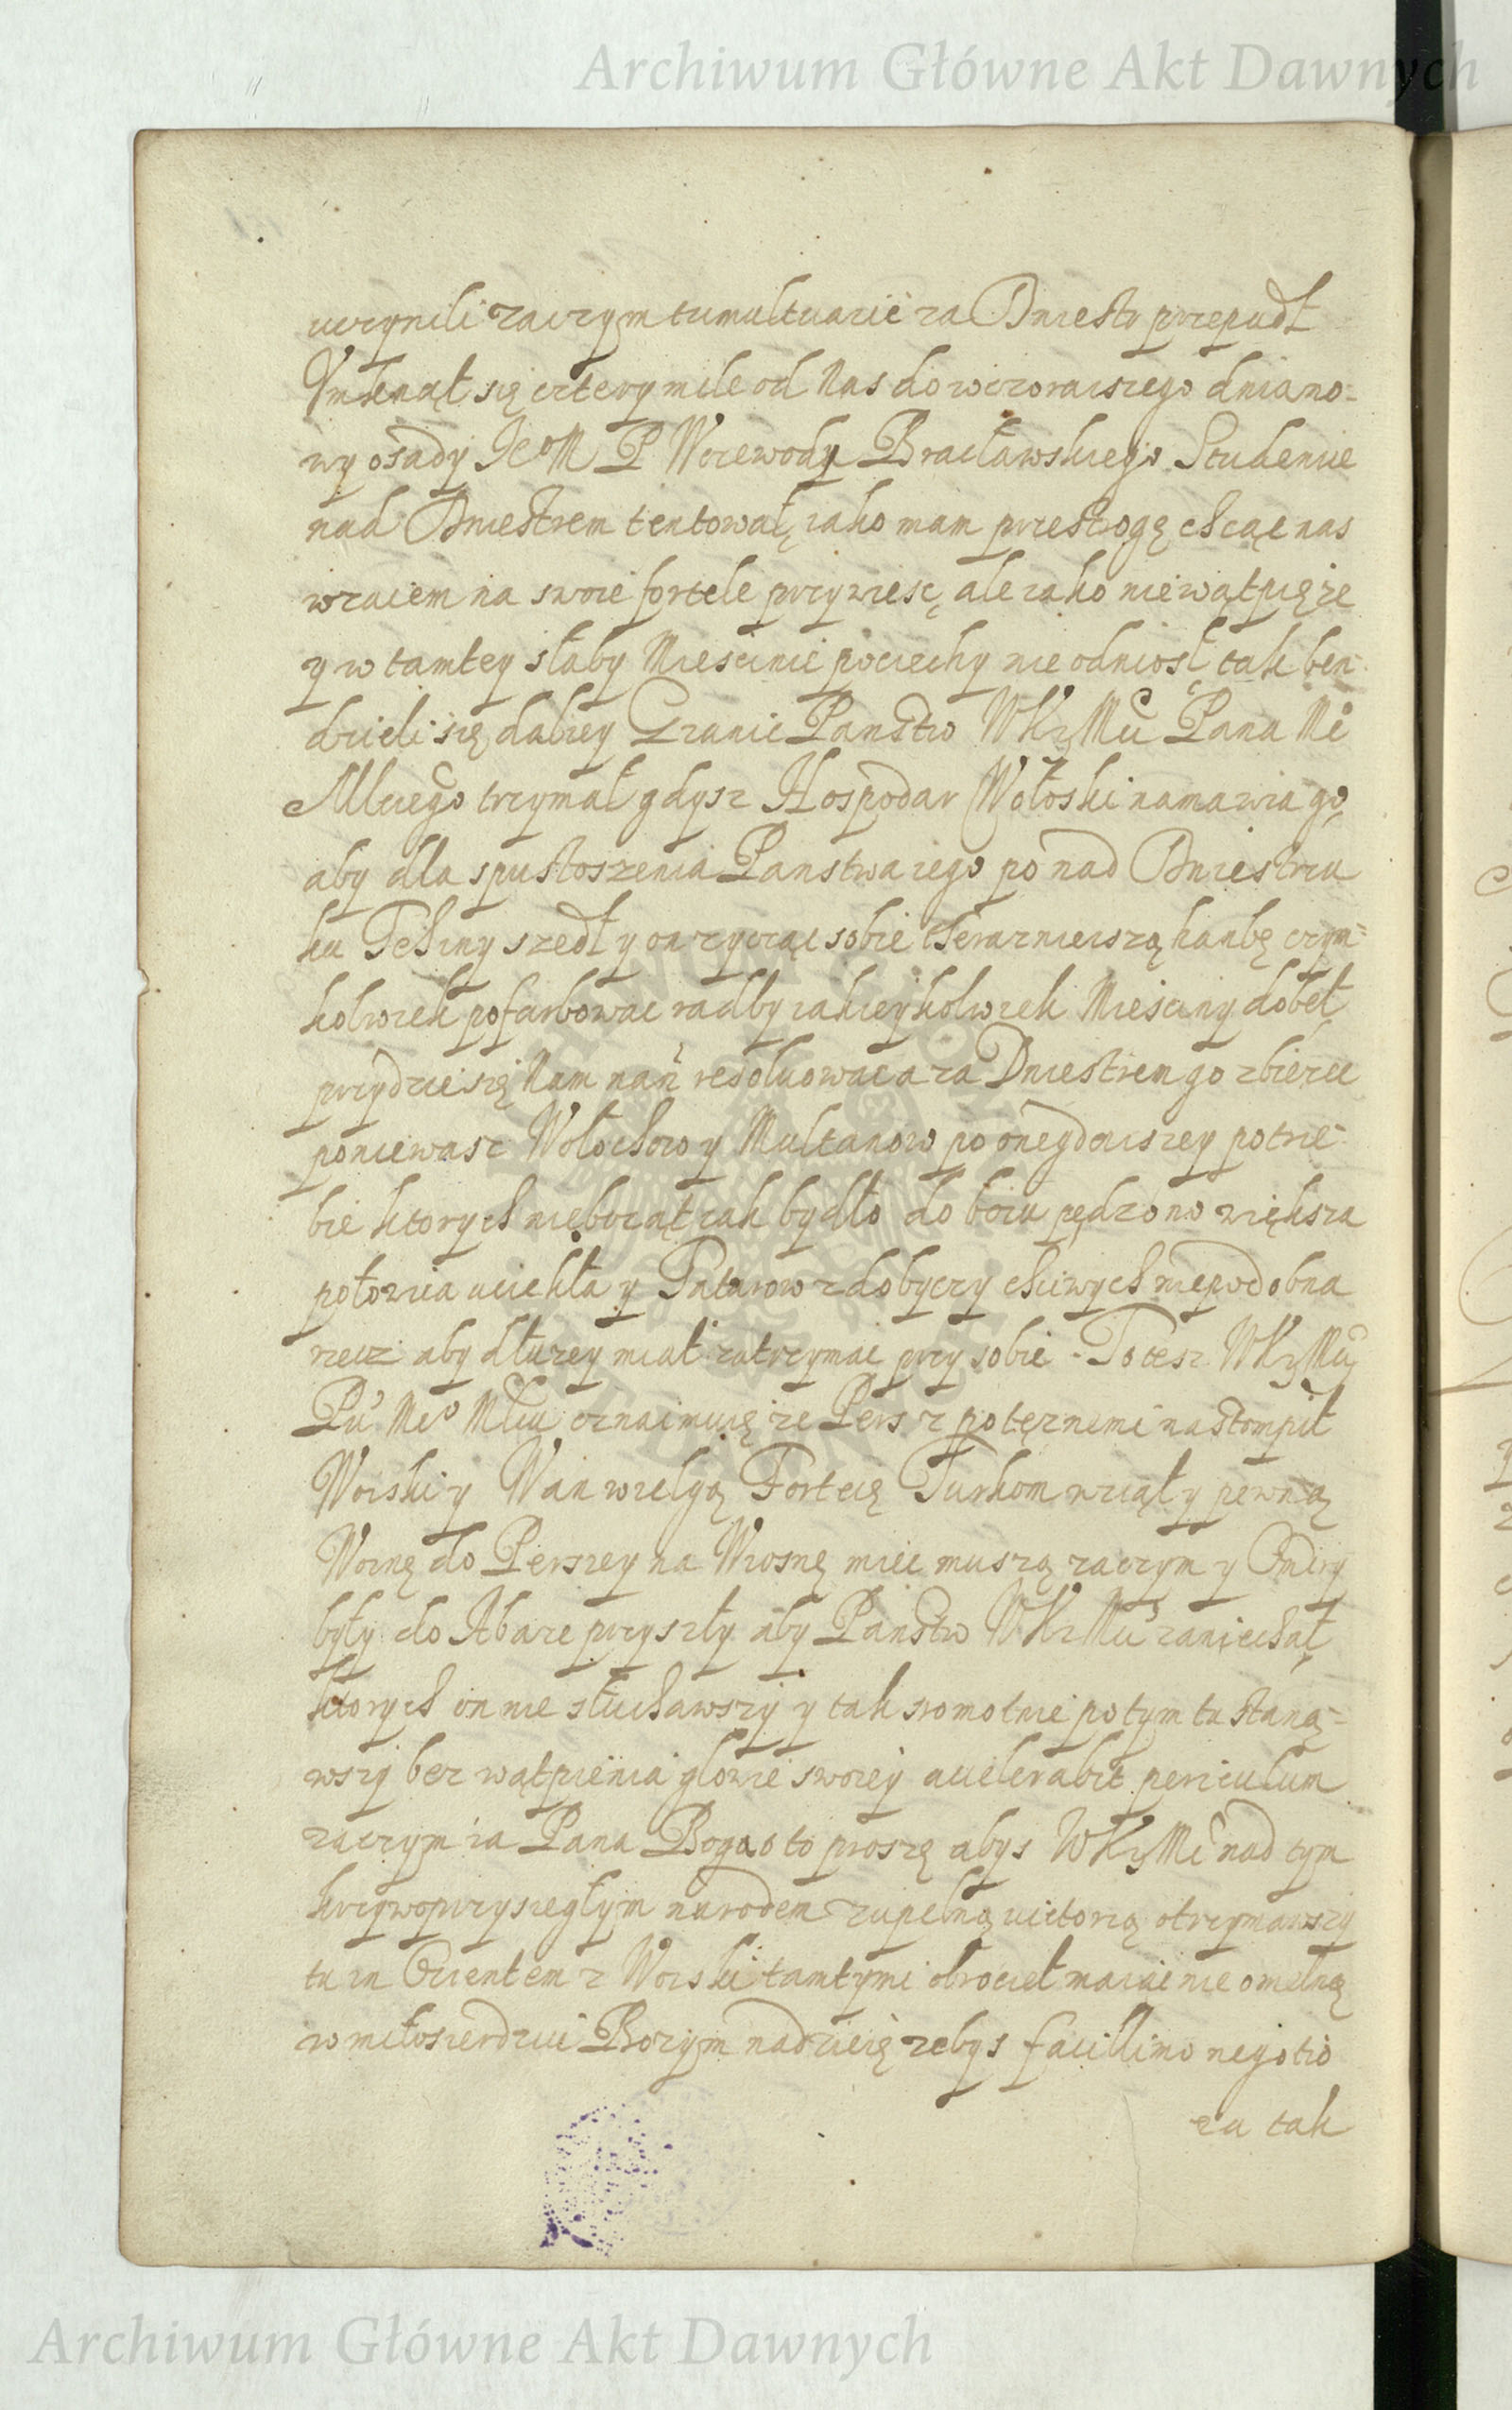 Archiwum Główne Akt Dawnych
uczynili zaczym tumultuarie za Dniestr przepadł
Vmknął się cztery mile od Nas do wczorayszego dnia no-
wy osady Jeo M P Woiewody Bracławskiego Studenice
nad Dniestrem tentował, iako mam przestrogę chcąc nas
wzaiem na swoie fortele przywiesc, ale iako nie wątpię że
y w tamtey słaby Miescinie pociechy nie odniosł, tak ben
dzieli się daley Granic Panstw WKrMci Pana Me
Młciego trzymał gdysz Hospodar Wołoski namawia go,
aby dla spustoszenia Panstwa iego po nad Dniestru
ku Tehiny szedł y on zycząc sobie theraznieiszą hanbę czym-
kolwiek pofarbowac radby iakieykolwiek Miesciny dobeł
przydzie się Nam nań resoluowac a za Dniestrem go zbierze
poniewasz Wołochow y Multanow po onegdaiszey potrze-
bie ktorych nieboząt iak bydło do boiu pędzono większa
połowica uciekła y Tatarow zdobyczy chciwych niepodobna
rzecz aby dłużey miał zatrzymac przy sobie. To tesz WKrMci
Pu Meo Młciu oznaimuię ze Pers z potęznemi nastompił
Woiski y Wan wielgą Fortecę Turkom wziął y pewną
Woinę do Perszey na Wiosnę miec muszą zaczym y Ordiny
były do Abaze przyszły aby Panstw WKrMci zaniechał,
ktorych on nie słuchawszy y tak sromotnie potym tu staną-
wszy bez wątpienia głowie swoiey accelerabit periculum
zaczym ia Pana Boga o to proszę abys WKrMc nad tym
krzywoprzysięgłym narodem zupełną victorią otrzymawszy
tu in Orientem z Woiski tamtymi obrocieł maiąc nie omelną
w miłosierdziu Bozym nadzieię zebys facillimo negotio
za tak
Archiwum Główne Akt Dawnych